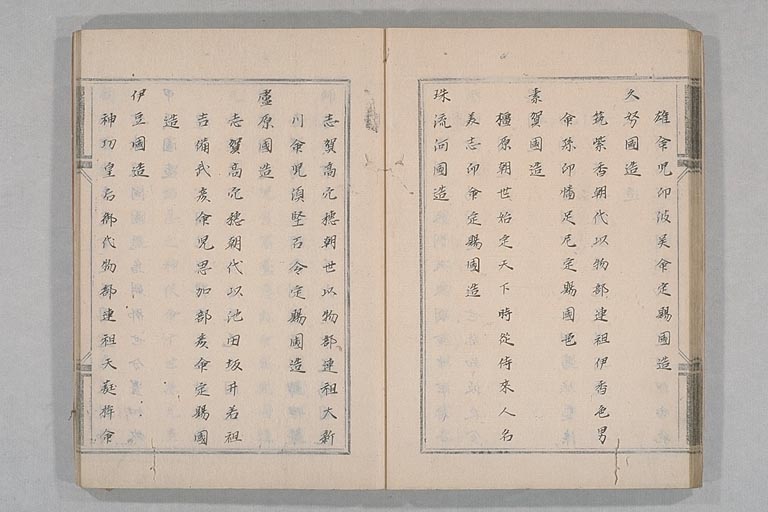 雄命児印波美命定賜国造
久努国造
筑紫香朝代以物部連祖伊香色男
命孫印幡足尼定賜国造
素賀国造
橿原朝世始定天下時従侍来人名
美志印命定賜国造
珠流河国造
志賀高穴穂朝世以物部連祖大新
川命児片堅石命定賜国造
廬原国造
志賀高穴穂朝代以池田坂井君祖
吉備武彦命児思加部彦命定賜国
造
伊豆国造
神功皇后御代物部連祖天蕤桙命